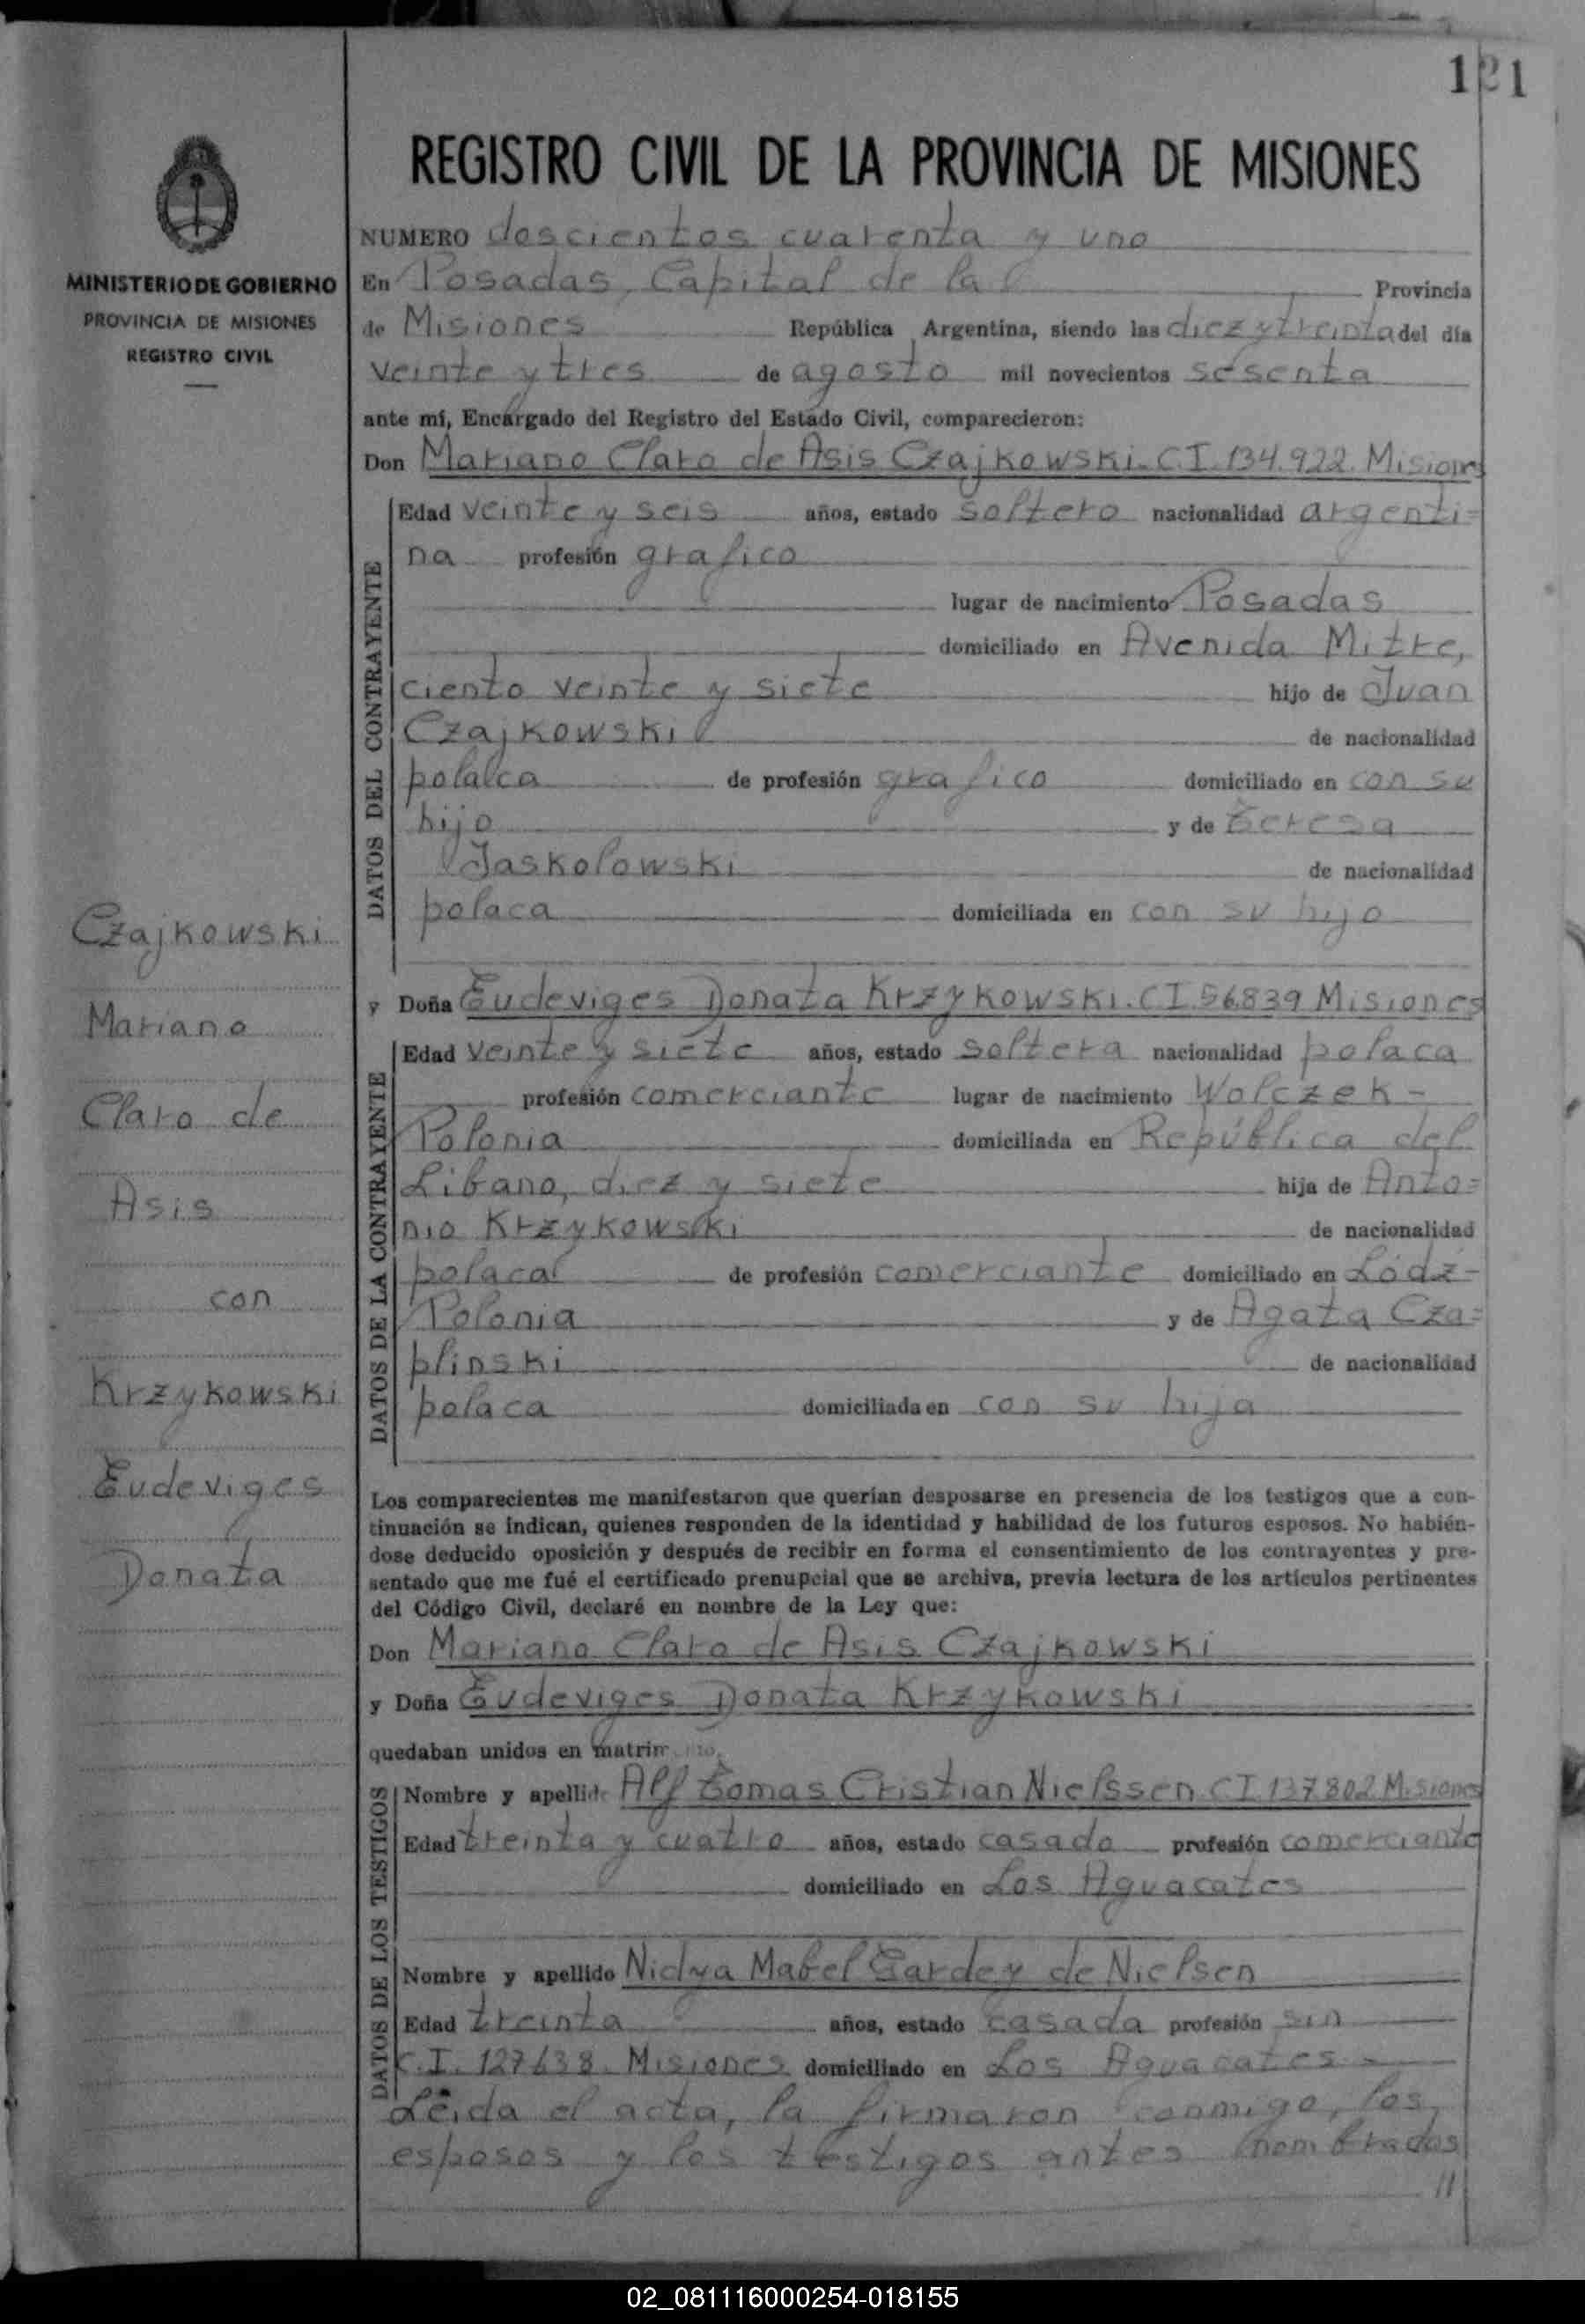 121
REGISTRO CIVIL DE LA PROVINCIA DE MISIONES
MINISTERIO DE GOBIERNO
PROVINCIA DE MISIONES
REGISTRO CIVIL
NUMERO doscientos cuarenta y uno
En Posadas, Capital de la Provincia
de Misiones República Argentina, siendo las diez y treinta del día
veinte y tres de agosto mil novecientos sesenta
ante mí, Encargado del Registro del Estado Civil, comparecieron:
Don Mariano Claro de Asis Czajkowski. C.I. 134.922. Misiones
DATOS DEL CONTRAYENTE
Edad veinte y seis años, estado soltero nacionalidad argenti=
na profesión grafico
lugar de nacimiento Posadas
domiciliado en Avenida Mitre,
ciento veinte y siete hijo de Juan
Czajkowski de nacionalidad
polaca de profesión grafico domiciliado en con su
hijo y de Teresa
Jaskolowski de nacionalidad
polaca domiciliada en con su hijo
y Doña Eudeviges Donata Krzykowski. C.I. 56.839 Misiones
DATOS DE LA CONTRAYENTE
Edad veinte y siete años, estado soltera nacionalidad polaca
profesión comerciante lugar de nacimiento Wolczek -
Polonia domiciliada en República del
Libano, diez y siete hija de Anto=
nio Krzykowski de nacionalidad
polaca de profesión comerciante domiciliado en Lódz -
Polonia y de Agata Cza=
plinski de nacionalidad
polaca domiciliada en con su hija
Czajkowski
Mariano
Claro de
Asis
con
Krzykowski
Eudeviges
Donata
Los comparecientes me manifestaron que querían desposarse en presencia de los testigos que a con-
tinuación se indican, quienes responden de la identidad y habilidad de los futuros esposos. No habién-
dose deducido oposición y después de recibir en forma el consentimiento de los contrayentes y pre-
sentado que me fué el certificado prenupcial que se archiva, previa lectura de los artículos pertinentes
del Código Civil, declaré en nombre de la Ley que:
Don Mariano Claro de Asis Czajkowski
y Doña Eudeviges Donata Krzykowski
quedaban unidos en matrimonio.
DATOS DE LOS TESTIGOS
Nombre y apellido Alf Tomas Cristian Nielssen. C.I. 137.802 Misiones
Edad treinta y cuatro años, estado casado profesión comerciante
domiciliado en Los Aguacates
Nombre y apellido Nidya Mabel Gardey de Nielsen
Edad treinta años, estado casada profesión sin
C.I. 127.638. Misiones domiciliado en Los Aguacates -
Leida el acta, la firmaron conmigo, los
esposos y los testigos antes nombrados
//
02_081116000254-018155